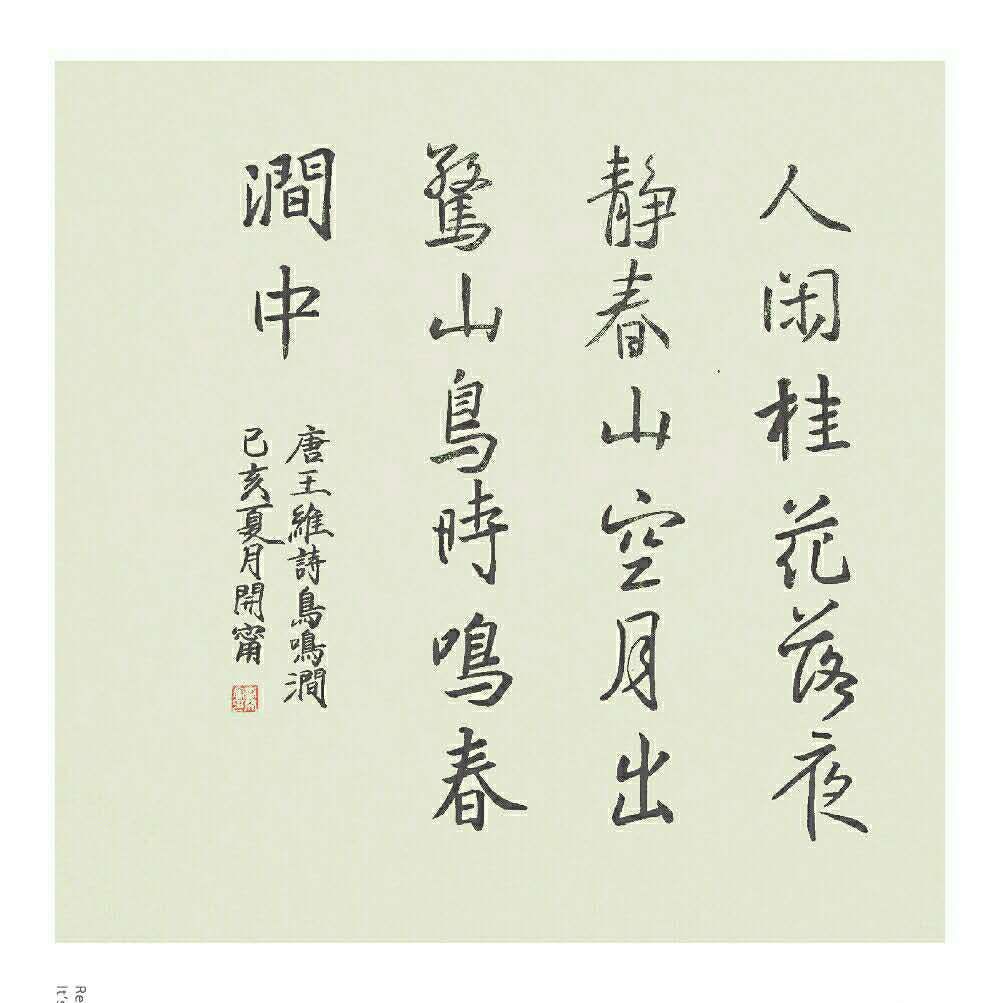 人闲桂花落夜
静春山空月出
驚山鳥時鳴春
澗中
唐王維詩鳥鳴澗
己亥夏月開甯
Re
It's